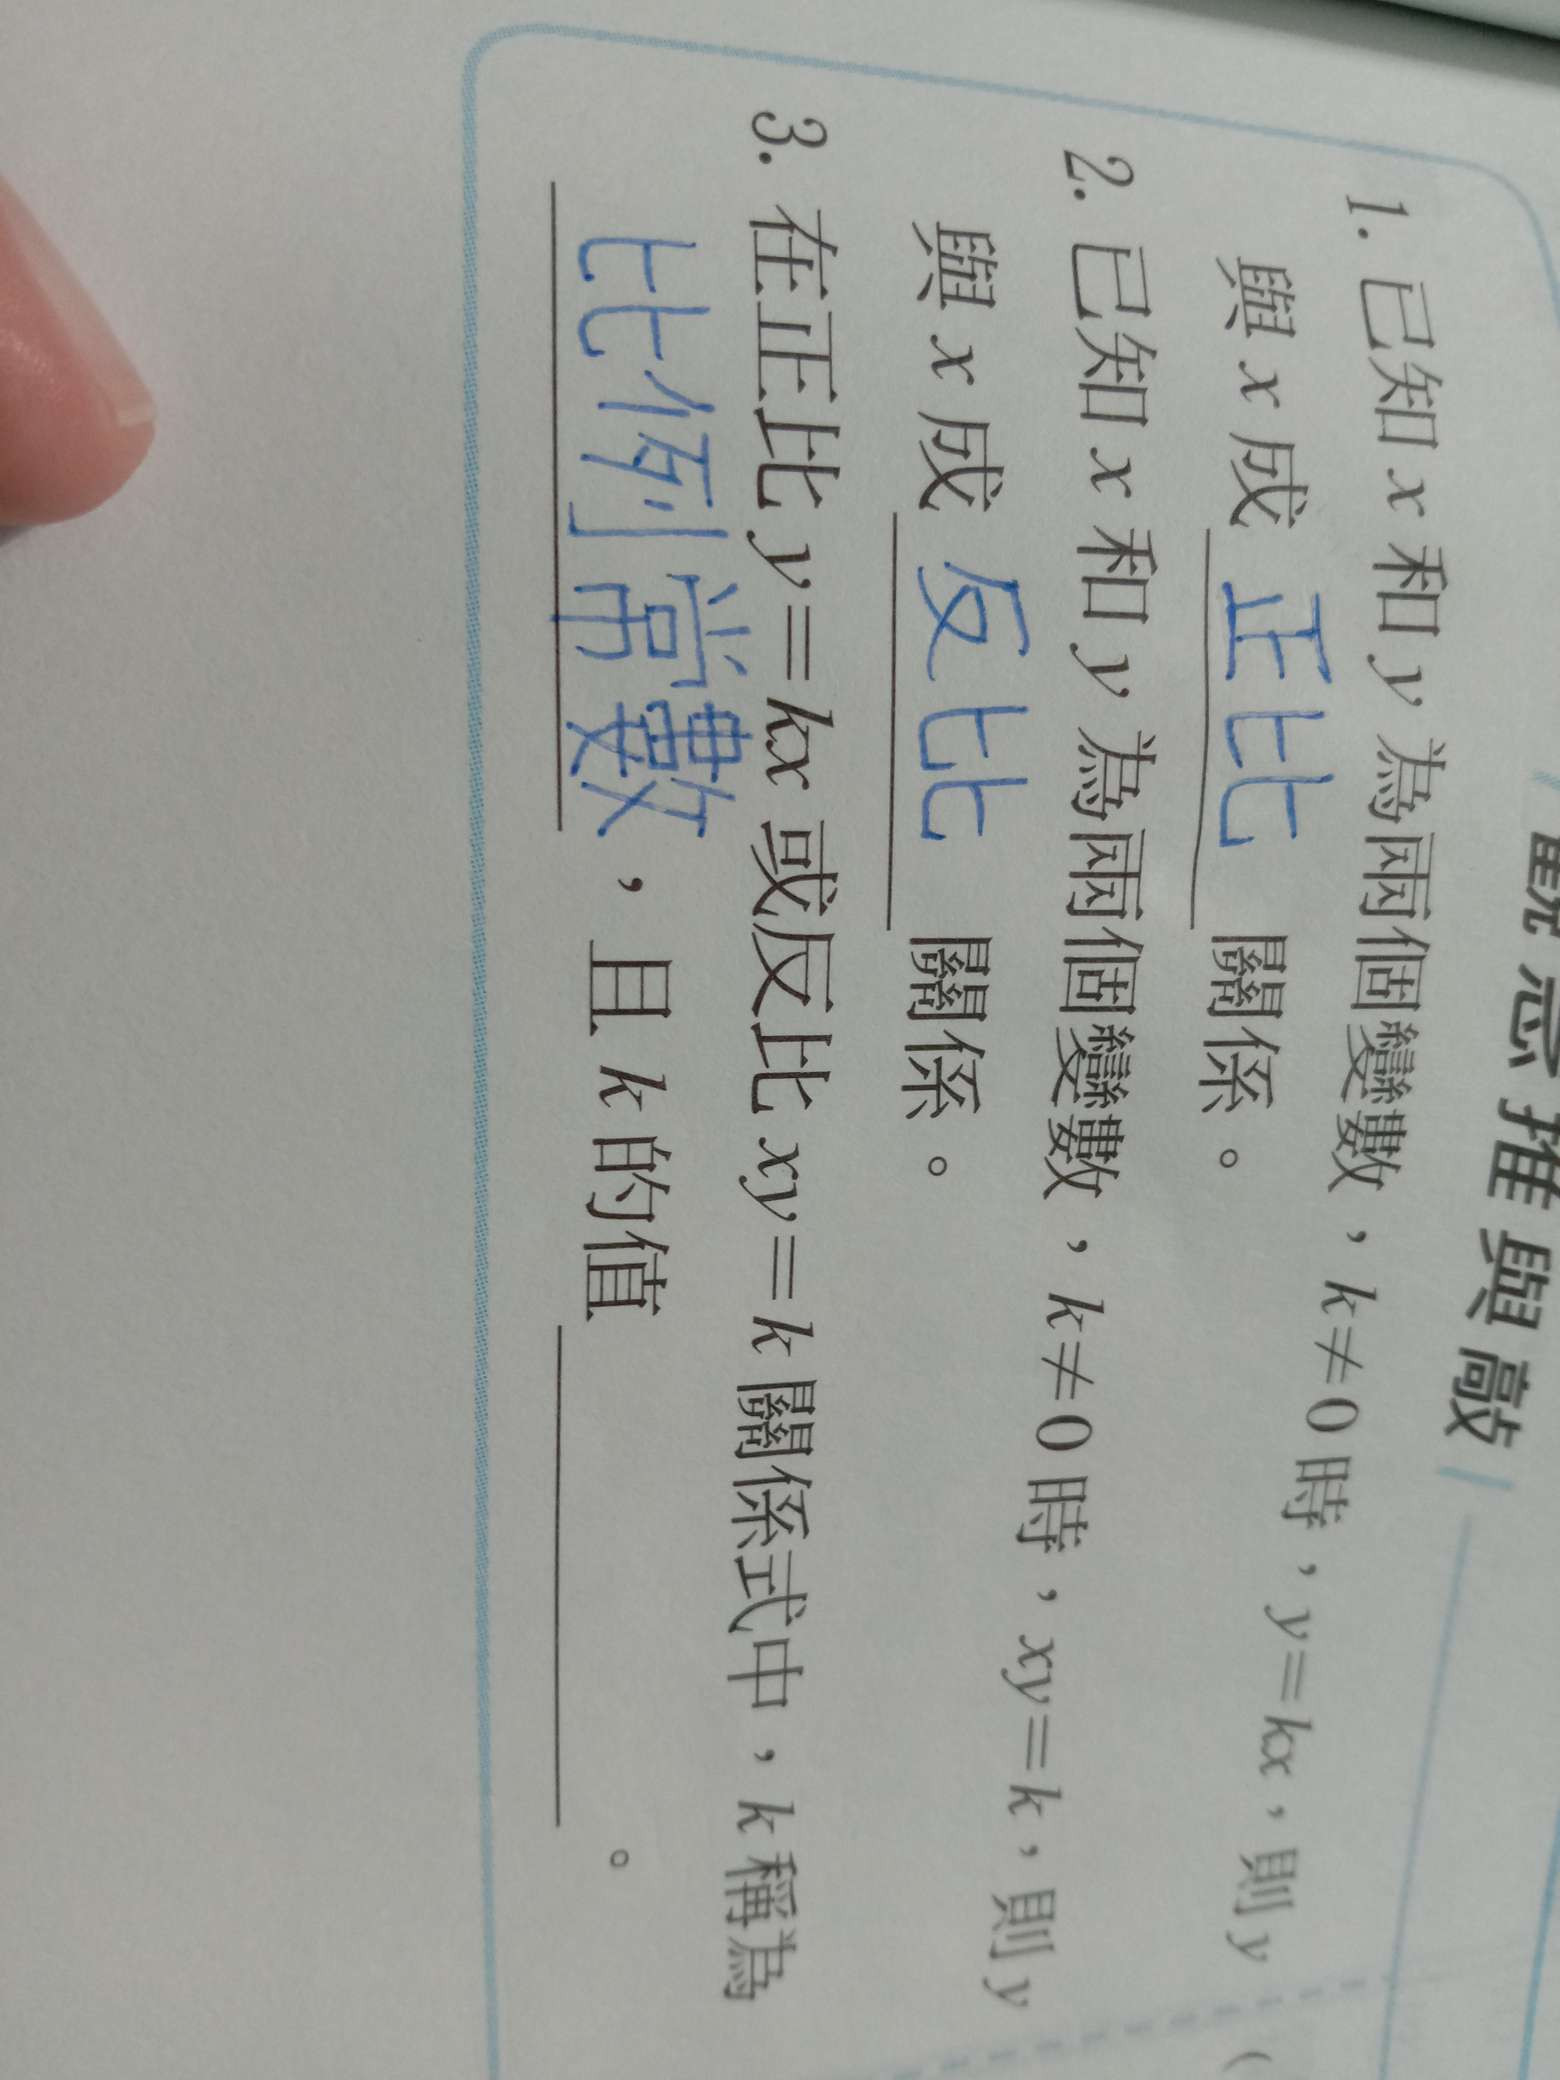 觀念推與敲
1. 已知 x 和 y 為兩個變數，k≠0 時，y=kx，則 y
與 x 成 正比 關係。
2. 已知 x 和 y 為兩個變數，k≠0 時，xy=k，則 y
與 x 成 反比 關係。
3. 在正比 y=kx 或反比 xy=k 關係式中，k 稱為
比例常數，且 k 的值 ＿＿＿＿＿。